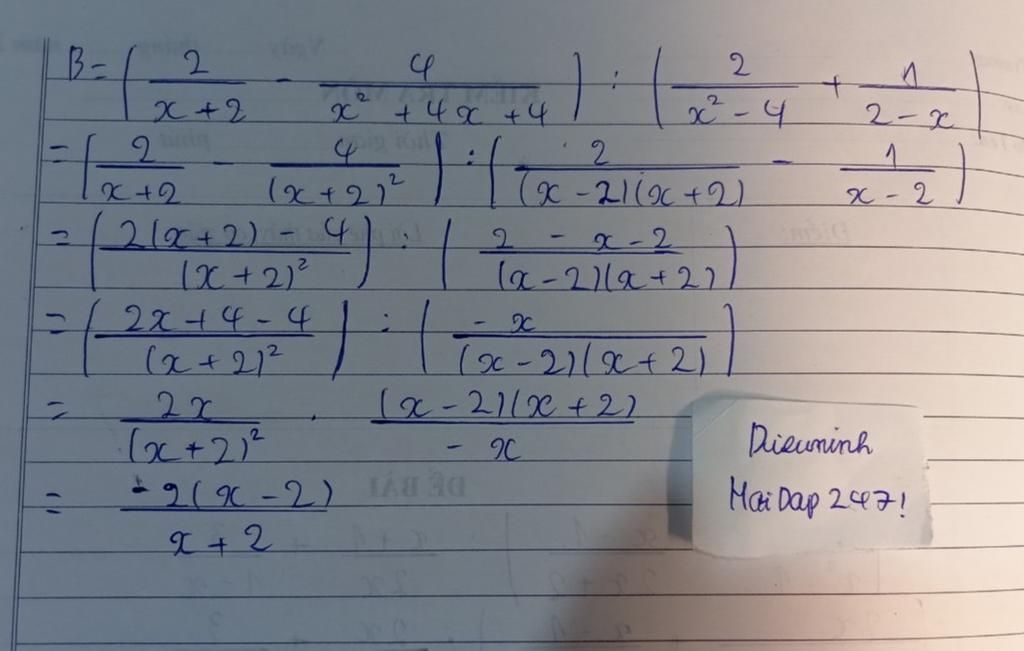 B = (2/(x+2) - 4/(x² + 4x + 4)) : (2/(x² - 4) + 1/(2 - x))
= (2/(x+2) - 4/(x+2)²) : (2/((x-2)(x+2)) - 1/(x-2))
= ((2(x+2) - 4)/(x+2)²) : ((2 - x - 2)/((x-2)(x+2)))
= ((2x + 4 - 4)/(x+2)²) : (-x/((x-2)(x+2)))
= 2x/(x+2)² . ((x-2)(x+2))/(-x)
= -2(x-2)/(x+2)
Dieuminh
HoiDap247!
ĐỀ BÀI